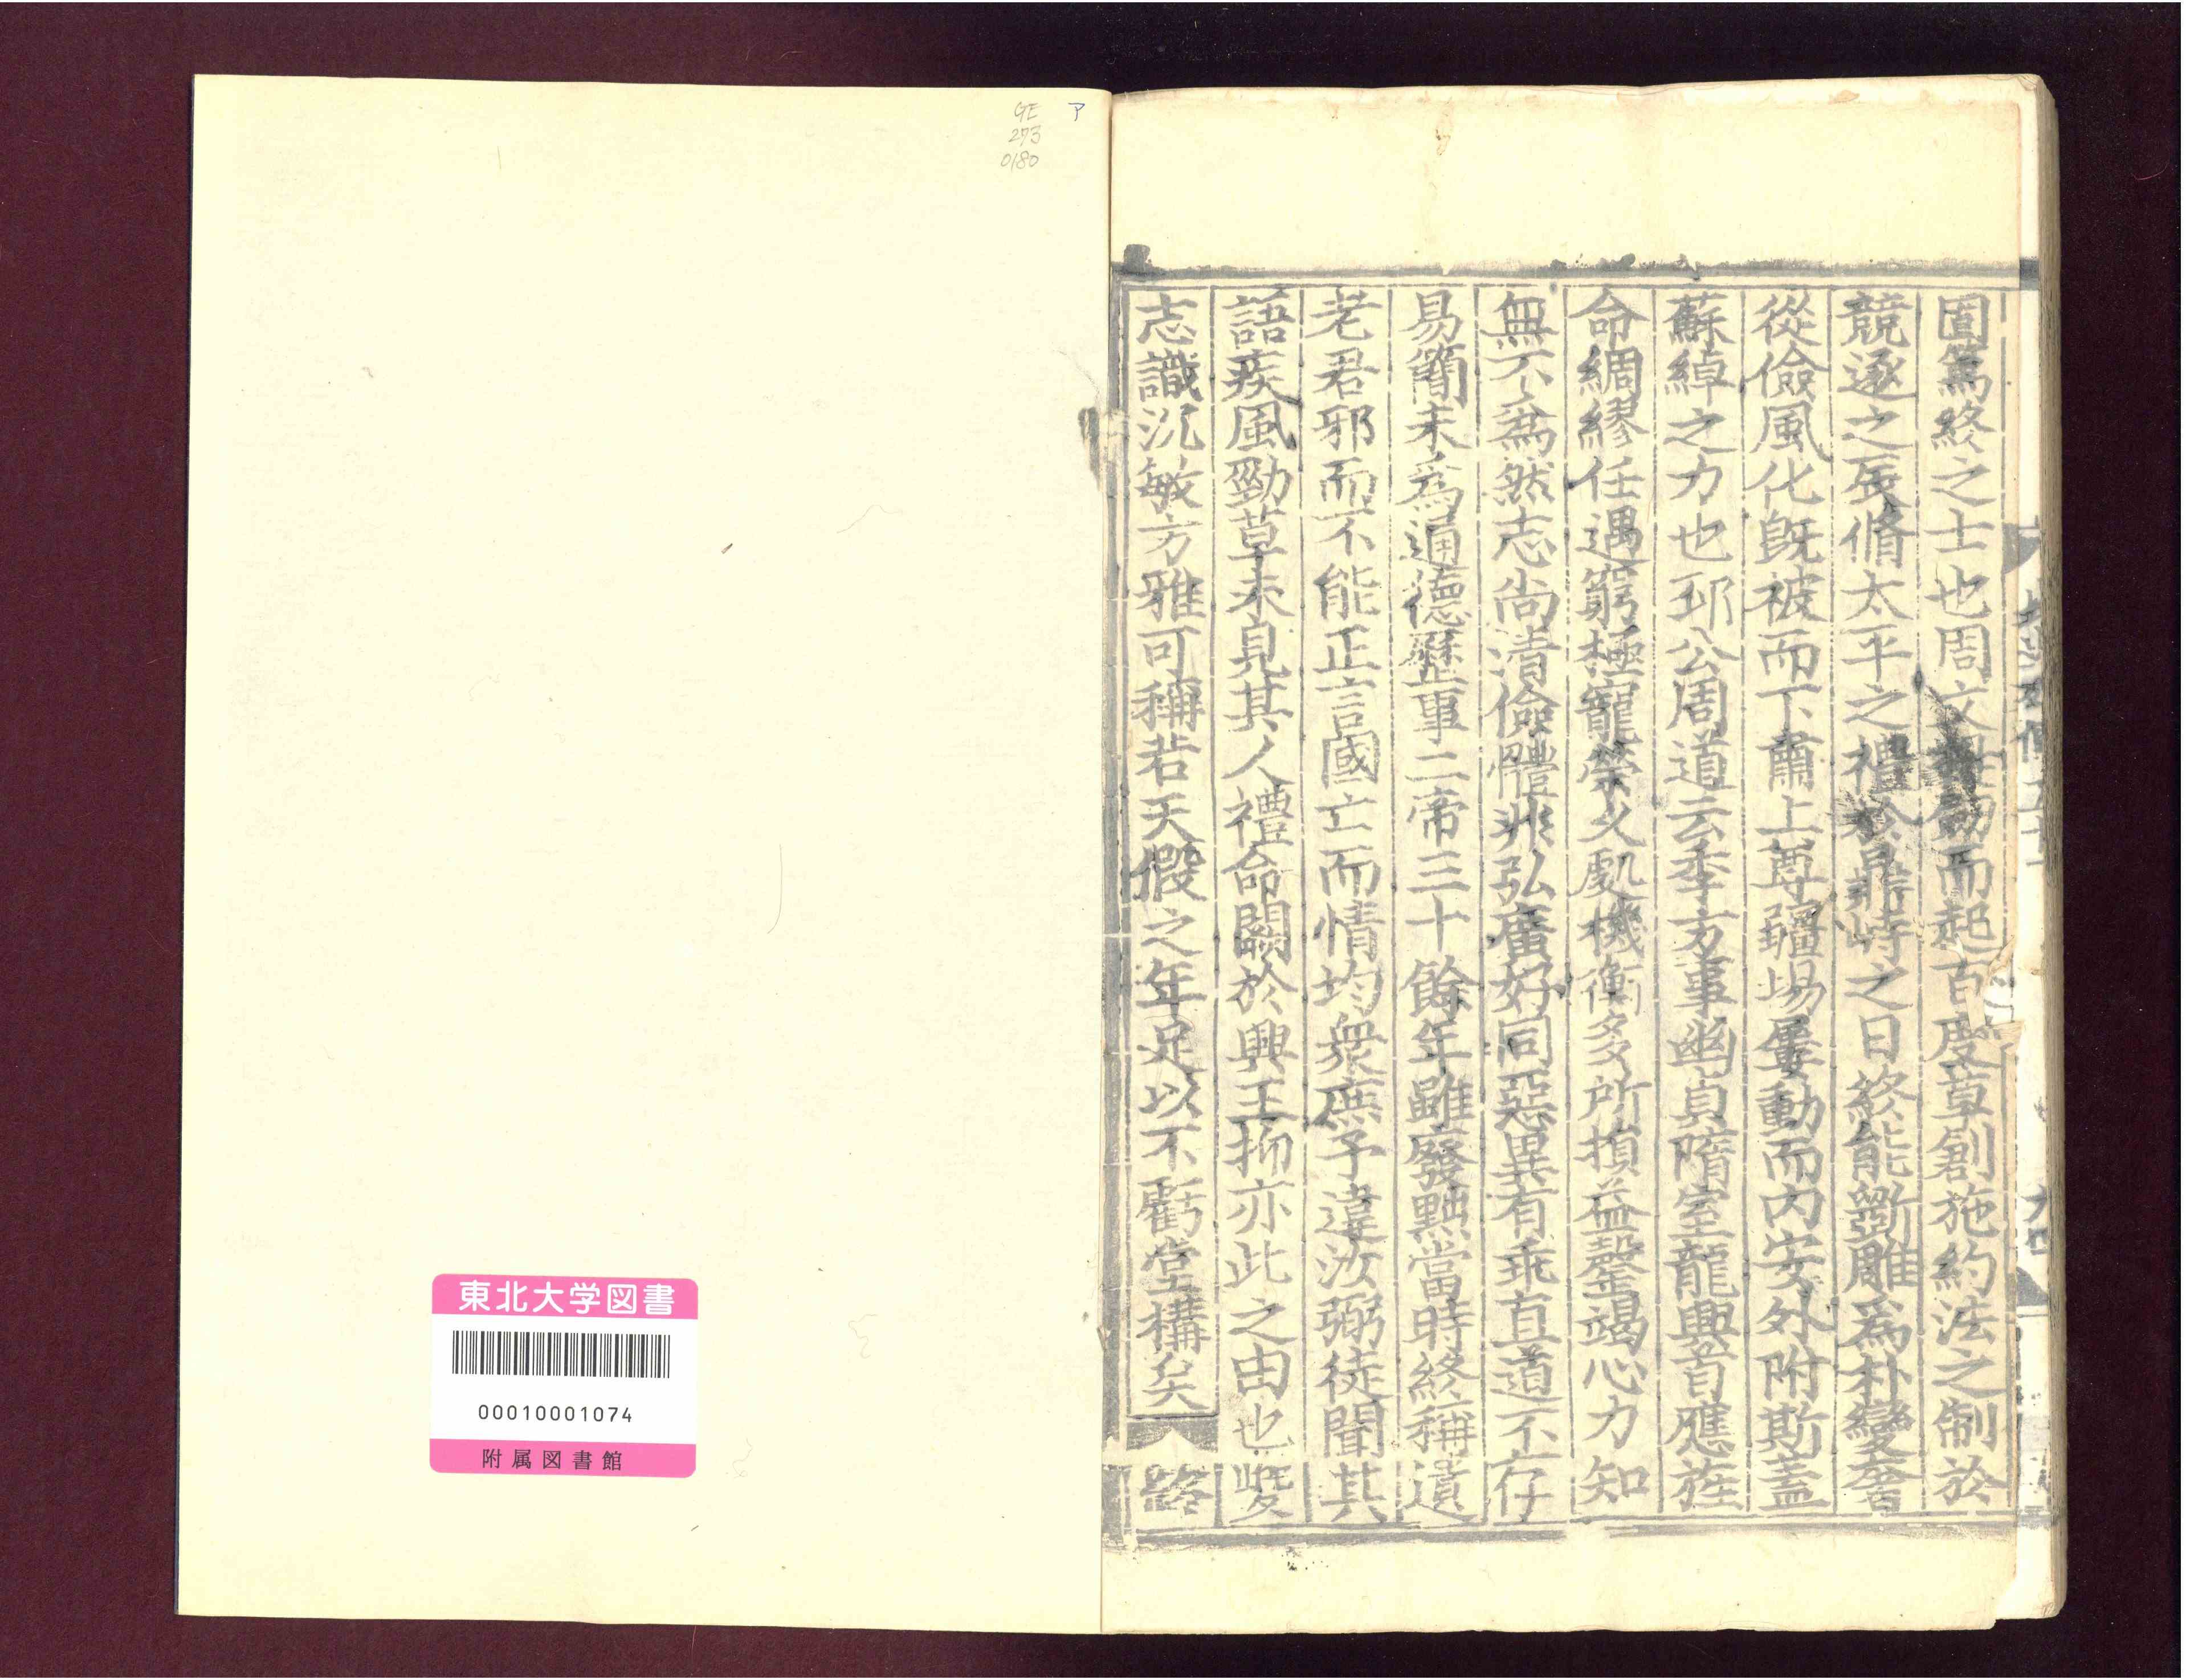 固篤終之士也周文提劒而起百度草創施約法之制於
競逐之辰脩太平之禮於鼎峙之日終能斵雕爲朴變奢
從儉風化旣被而下肅上尊疆埸屢動而內安外附斯蓋
蘇綽之力也邳公周道云季方事幽貞隋室龍興首應旌
命綢繆任遇窮極寵榮久處機衡多所損益罄竭心力知
無不爲然志尚清儉體非弘廣好同惡異有乖直道不存
易簡未爲通德歷事二帝三十餘年雖廢黜當時終稱遺
老君邪而不能正言國亡而情均衆庶予違汝弼徒聞其
語疾風勁草未見其人禮命闕於興王抑亦此之由也夔
志識沉敏方雅可稱若天假之年足以不虧堂構矣
GE
273
0180
ア
東北大学図書
00010001074
附属図書館